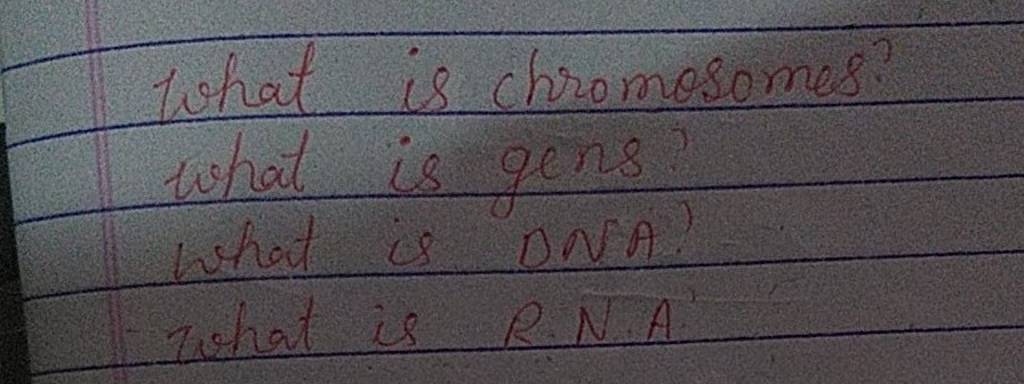 What is chromosomes?
What is gens?
What is DNA?
What is R.N.A.